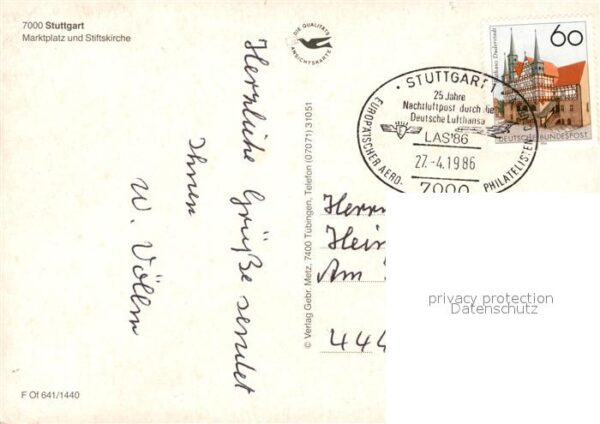 7000 Stuttgart
Marktplatz und Stiftskirche
DIE QUALITÄTS
ANSICHTSKARTE
Herzliche Grüße sendet
Ihnen
W. Völlm
F Of 641/1440
© Verlag Gebr. Metz, 7400 Tübingen, Telefon (07071) 31051
60
Duderstadt
DEUTSCHE BUNDESPOST
STUTTGART
25 Jahre
Nachtluftpost durch die
Deutsche Lufthansa
LAS'86
27.-4.1986
7000
EUROPÄISCHER AERO-
PHILATELISTEN
Herrn
Hein
Am
444
privacy protection
Datenschutz